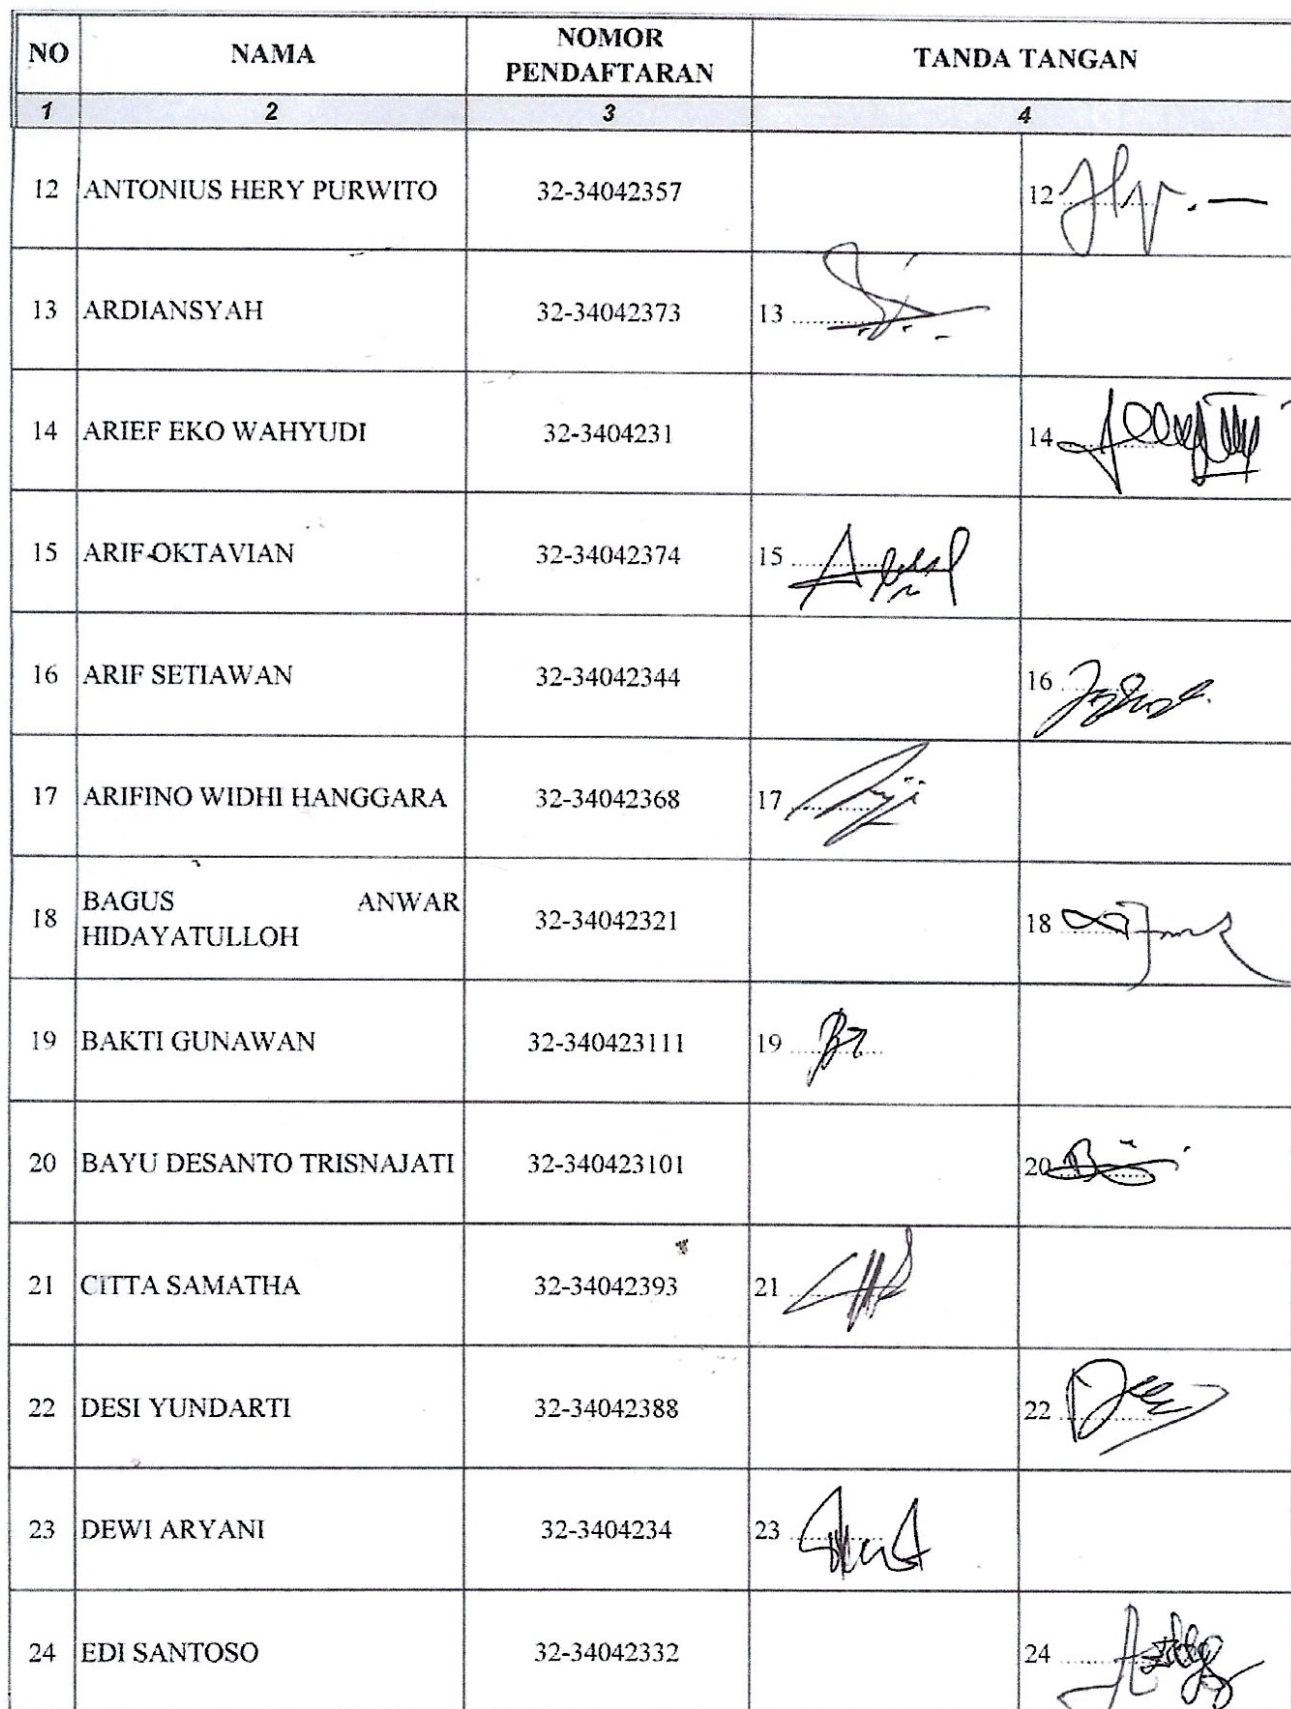 NO NAMA NOMOR PENDAFTARAN TANDA TANGAN
1 2 3 4
12 ANTONIUS HERY PURWITO 32-34042357 12
13 ARDIANSYAH 32-34042373 13
14 ARIEF EKO WAHYUDI 32-3404231 14
15 ARIF OKTAVIAN 32-34042374 15
16 ARIF SETIAWAN 32-34042344 16
17 ARIFINO WIDHI HANGGARA 32-34042368 17
18 BAGUS ANWAR HIDAYATULLOH 32-34042321 18
19 BAKTI GUNAWAN 32-340423111 19
20 BAYU DESANTO TRISNAJATI 32-340423101 20
21 CITTA SAMATHA 32-34042393 21
22 DESI YUNDARTI 32-34042388 22
23 DEWI ARYANI 32-3404234 23
24 EDI SANTOSO 32-34042332 24